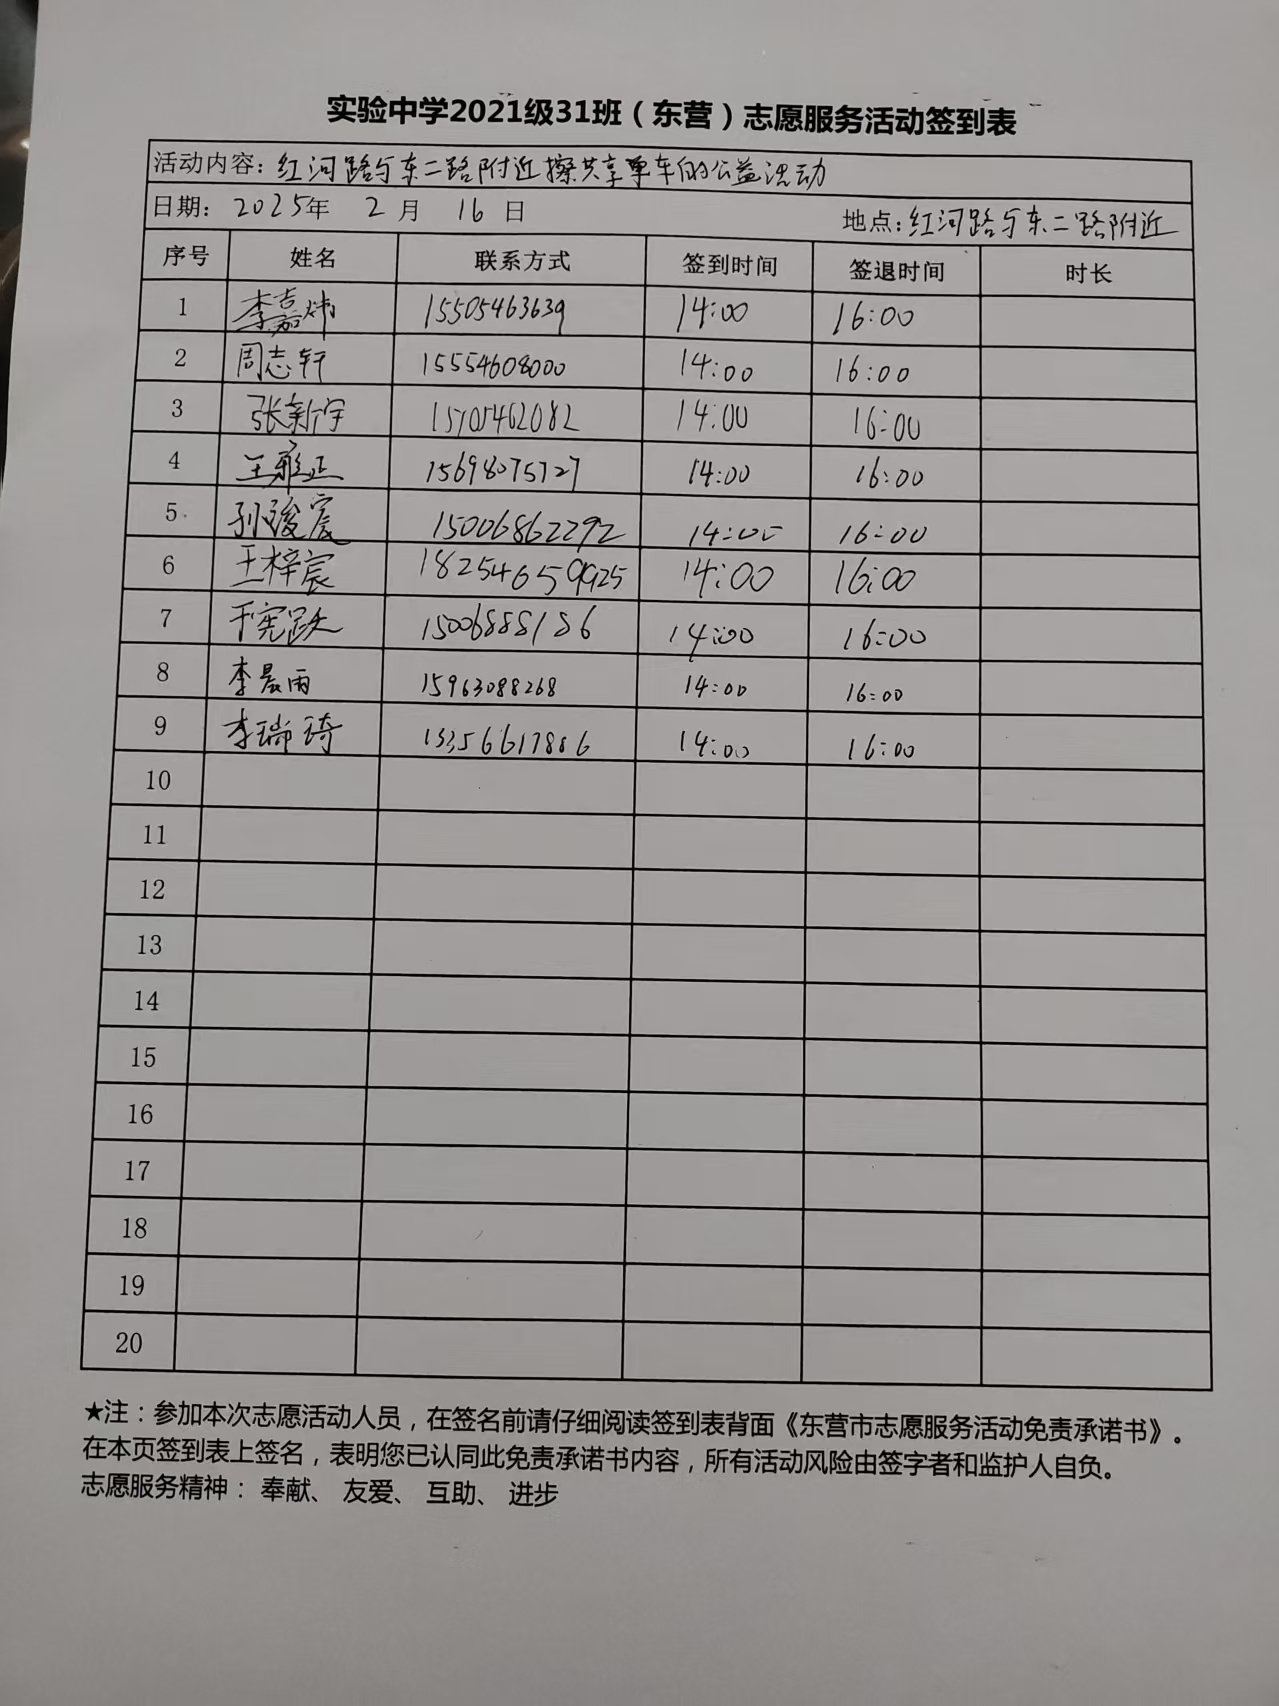 实验中学2021级31班（东营）志愿服务活动签到表
活动内容：红河路与东二路附近擦共享单车的公益活动
日期：2025年 2月 16日 地点：红河路与东二路附近
序号 姓名 联系方式 签到时间 签退时间 时长
1 李嘉炜 15505463639 14:00 16:00
2 周志轩 15554608000 14:00 16:00
3 张新宇 15705462082 14:00 16:00
4 王雍正 15698075727 14:00 16:00
5 孙浚宸 15006862292 14:00 16:00
6 王梓宸 18254659925 14:00 16:00
7 于宪跃 15006888186 14:00 16:00
8 李晨雨 15963088268 14:00 16:00
9 李瑞琦 13356617886 14:00 16:00
10
11
12
13
14
15
16
17
18
19
20
★注：参加本次志愿活动人员，在签名前请仔细阅读签到表背面《东营市志愿服务活动免责承诺书》。
在本页签到表上签名，表明您已认同此免责承诺书内容，所有活动风险由签字者和监护人自负。
志愿服务精神：奉献、友爱、互助、进步